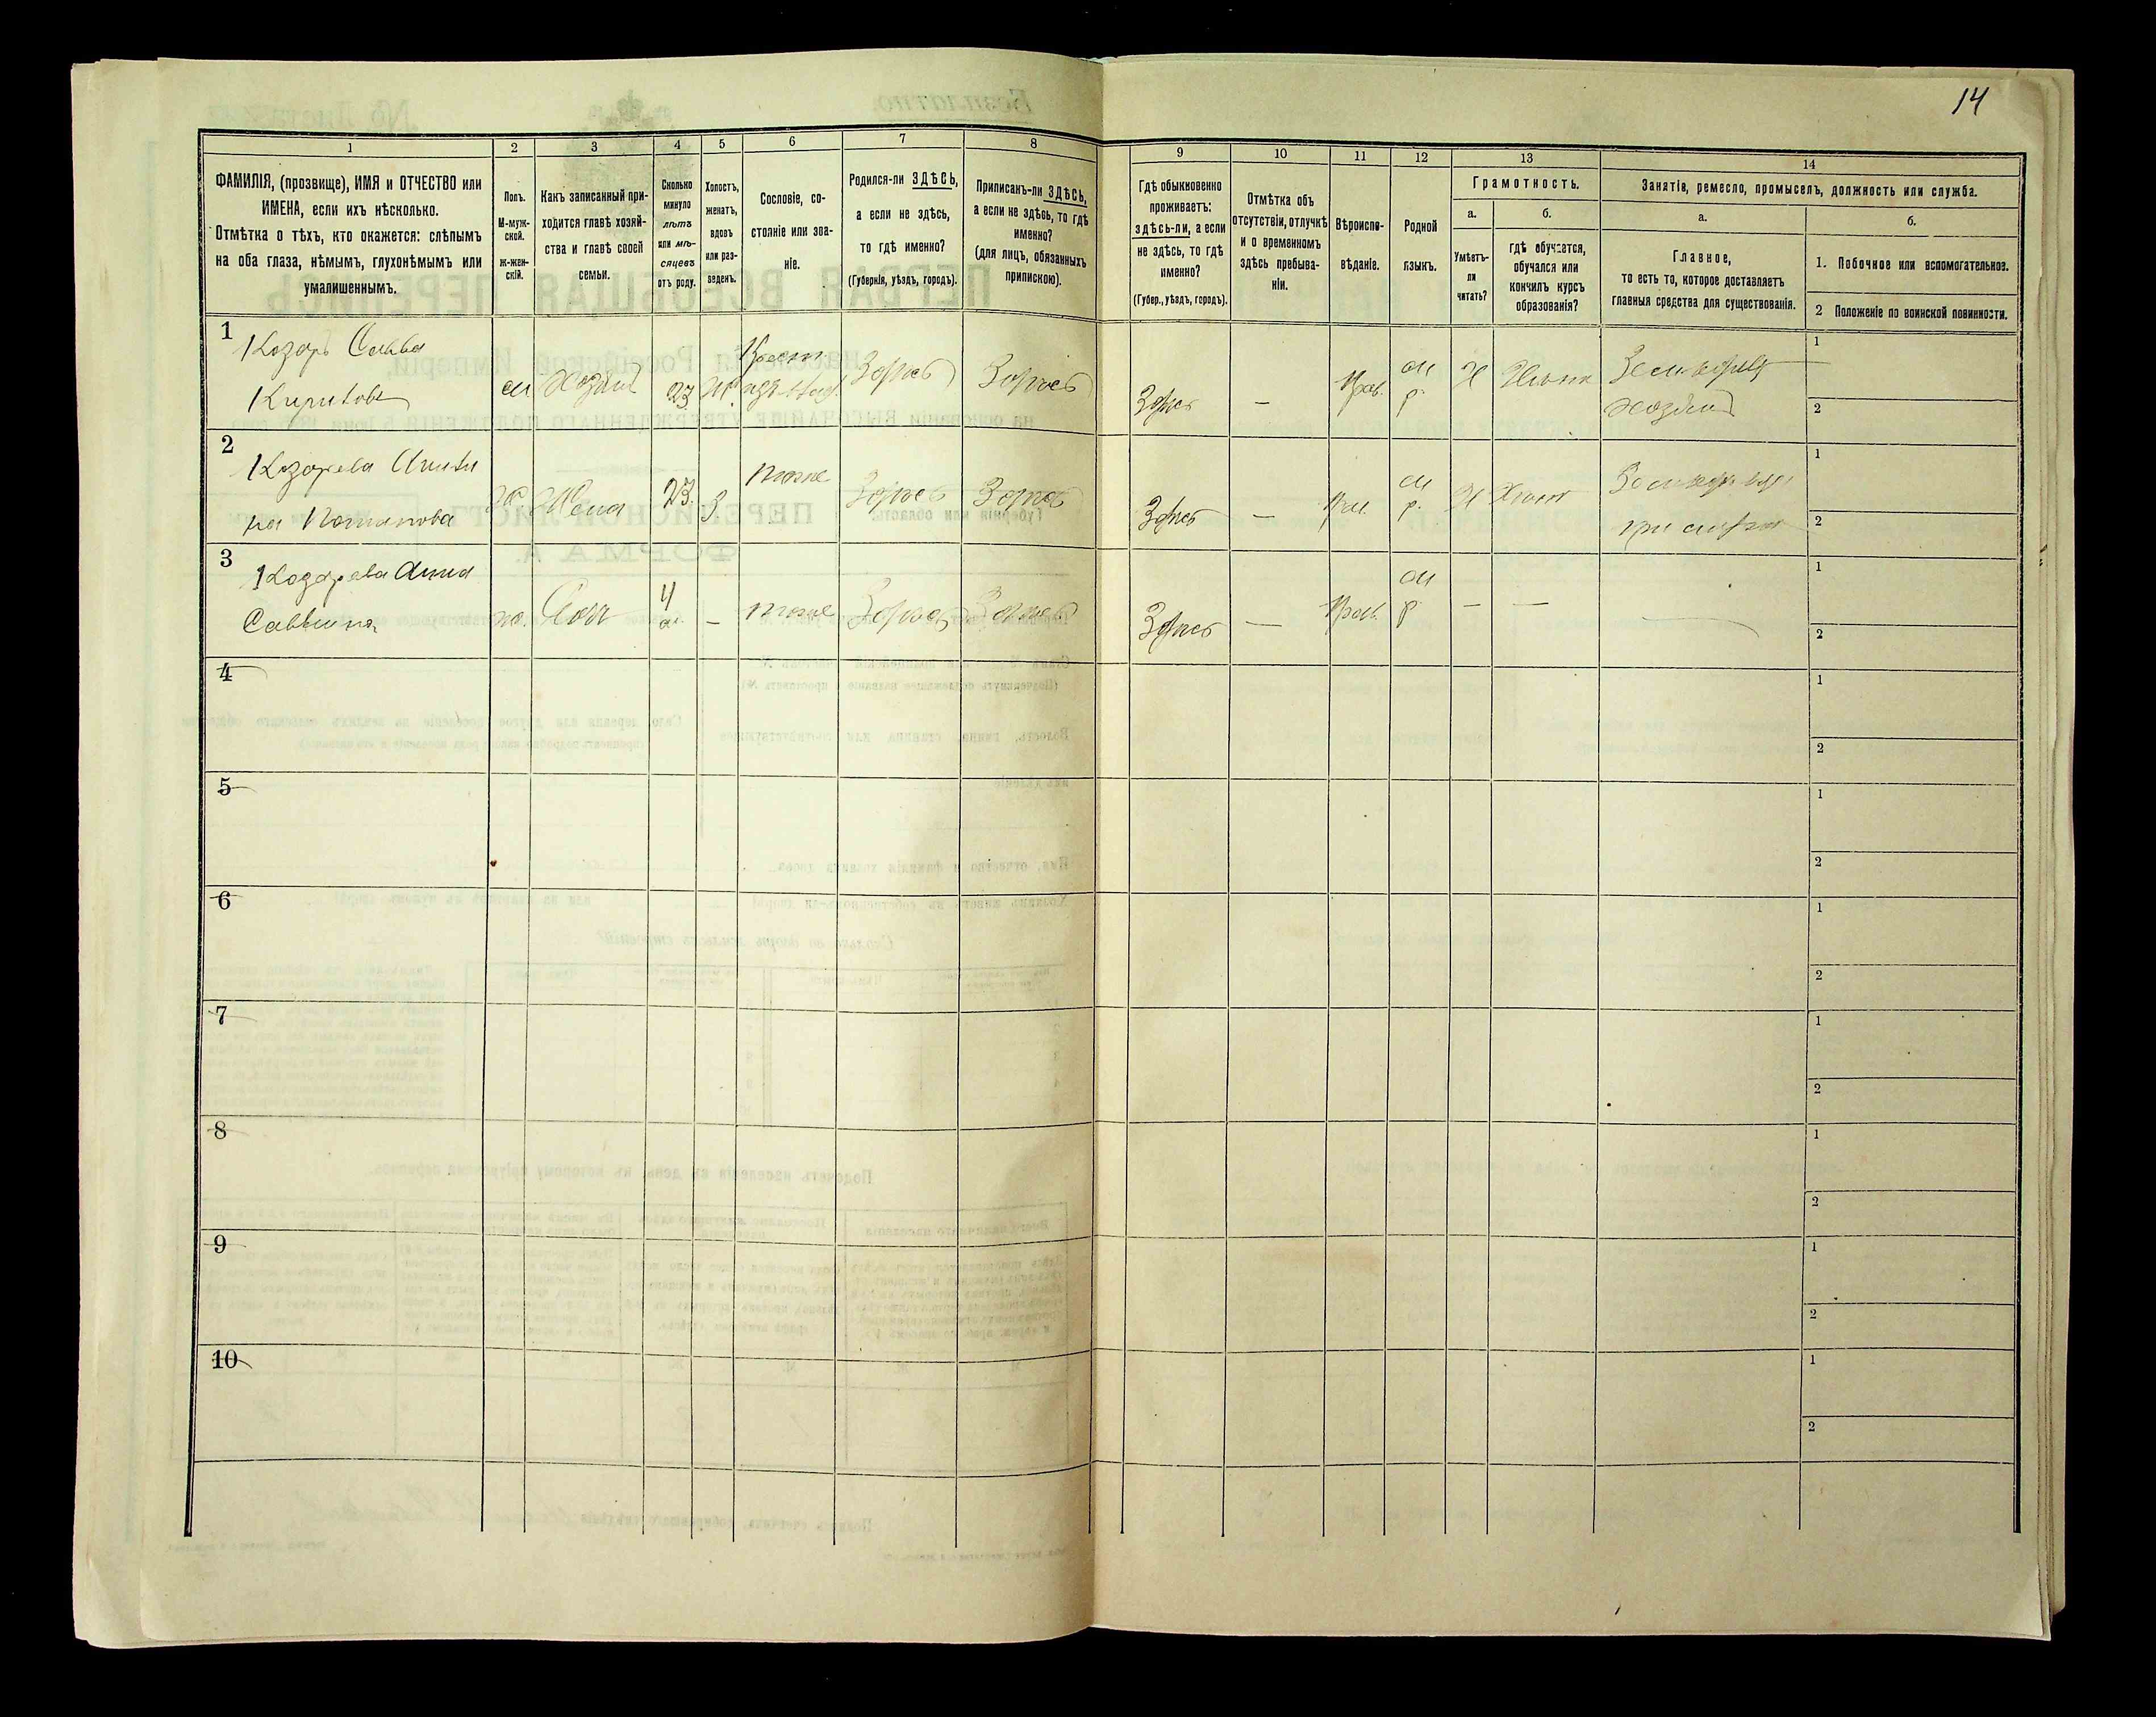 14
1
2
3
4
5
6
7
8
9
10
11
12
13
14
ФАМИЛІЯ, (прозвище), ИМЯ и ОТЧЕСТВО или
ИМЕНА, если ихъ нѣсколько.
Отмѣтка о тѣхъ, кто окажется: слѣпымъ
на оба глаза, нѣмымъ, глухонѣмымъ или
умалишеннымъ.
Полъ.
М-муж-
ской.
Ж-жен-
скій.
Какъ записанный при-
ходится главѣ хозяй-
ства и главѣ своей
семьи.
Сколько
минуло
лѣтъ
или мѣ-
сяцевъ
отъ роду.
Холостъ,
женатъ,
вдовъ
или раз-
веденъ.
Сословіе, со-
стояніе или зва-
ніе.
Родился-ли ЗДѢСЬ,
а если не здѣсь,
то гдѣ именно?
(Губернія, уѣздъ, городъ).
Приписанъ-ли ЗДѢСЬ,
а если не здѣсь, то гдѣ
именно?
(для лицъ, обязанныхъ
припискою).
Гдѣ обыкновенно
проживаетъ:
здѣсь-ли, а если
не здѣсь, то гдѣ
именно?
(Губер., уѣздъ, городъ).
Отмѣтка объ
отсутствіи, отлучкѣ
и о временномъ
здѣсь пребыва-
ніи.
Вѣроиспо-
вѣданіе.
Родной
языкъ.
Грамотность.
а.
Умѣетъ-
ли
читать?
б.
гдѣ обучается,
обучался или
кончилъ курсъ
образованія?
Занятіе, ремесло, промыселъ, должность или служба.
а.
Главное,
то есть то, которое доставляетъ
главныя средства для существованія.
б.
1. Побочное или вспомогательное.
2 Положеніе по воинской повинности.
1
Козарь Савва
Кирилловъ
м
Хозяинъ
23
ж.
Крест.
Здѣсь
Здѣсь
Здѣсь
—
Прав.
м
р.
Н
Хозяин
1
2
2
Козарева
Потапова
ж
Жена
23.
З
тоже
Здѣсь
Здѣсь
Здѣсь
—
м
р.
Н
при
1
2
3
Козарева Анна
Саввина
ж.
Дочь
4
м.
—
тоже
Здѣсь
Здѣсь
Здѣсь
—
Прав.
м
р
—
—
1
2
4
1
2
5
1
2
6
1
2
7
1
2
8
1
2
9
1
2
10
1
2